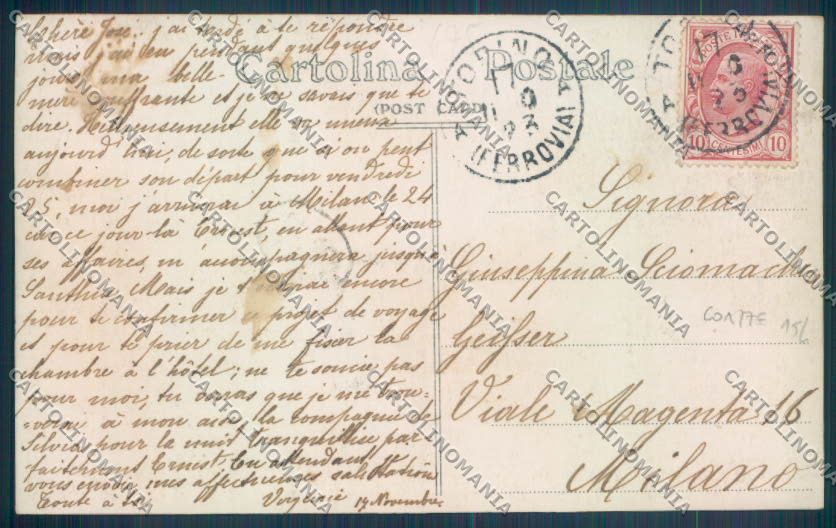 Chère Jou, j'ai tardé à te répondre
mais j'ai eu pendant quelques
jours ma belle-
mère souffrante et je ne savais que te
dire. Heureusement elle va mieux
aujourd'hui, de sorte que si on peut
combiner son départ pour vendredi
25, moi j'arriverai à Milan le 24
car ce jour-là Ernest, en allant pour
ses affaires, m'accompagnera jusqu'à
Santhià. Mais je t'écrirai encore
pour te confirmer ce projet de voyage
et pour te prier de me fixer la
chambre à l'hôtel; ne te soucie pas
pour moi, tu sauras que je me trou-
verai à mon aise la compagnie de
Silvia pour la nuit tranquillise par-
faitement Ernest. En attendant
vous envoie mes affectueuses salutations
Toute à toi Virginie 17 Novembre.
Cartolina Postale
(POST CARD)
TORINO
17
11
(FERROVIA)
TORINO
17
(FERROVIA)
10 CENTESIMI 10
Signora
Giuseppina Sciomachen
Geisser
Viale Magenta 16
Milano
CARTOLINOMANIA